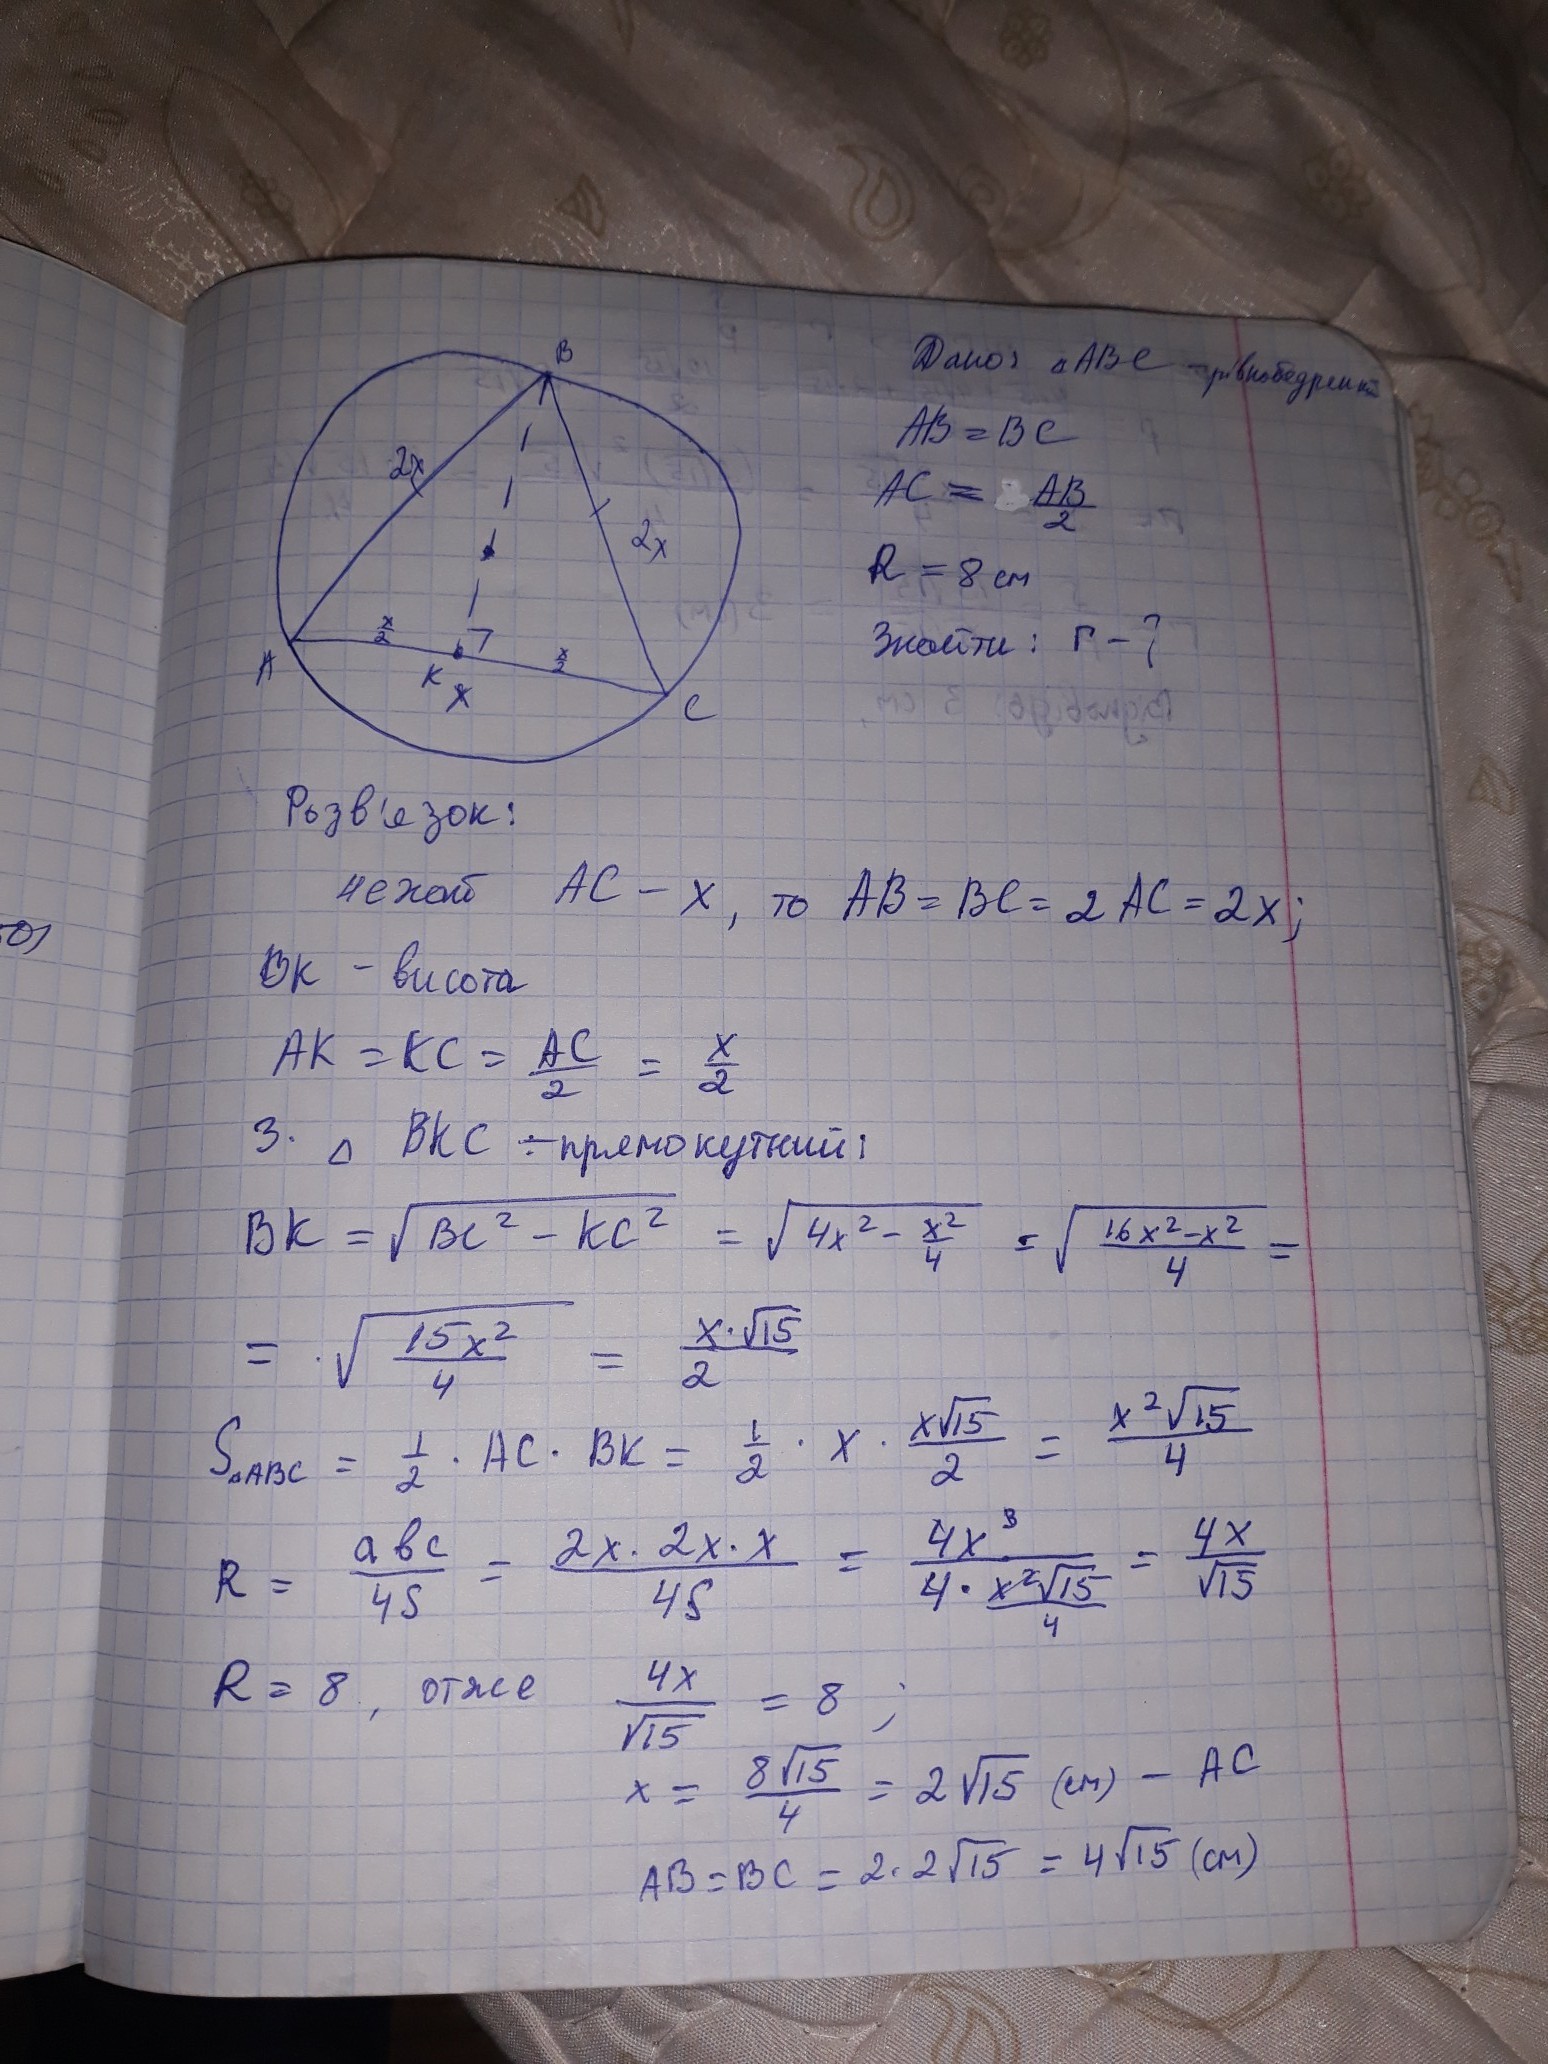 B
2x
2x
x/2
x/2
A
K
x
C
Дано: △ABC - рівнобедрений
AB = BC
AC = AB/2
R = 8 см
Знайти: r - ?
Розв'язок:
нехай AC - x, то AB = BC = 2AC = 2x;
BK - висота
AK = KC = AC/2 = x/2
3. △ BKC - прямокутний:
BK = √(BC² - KC²) = √(4x² - x²/4) = √((16x² - x²)/4) =
= √(15x²/4) = x·√15/2
S△ABC = 1/2 · AC · BK = 1/2 · x · x√15/2 = x²√15/4
R = abc/4S = 2x·2x·x/4S = 4x³/(4·x²√15/4) = 4x/√15
R = 8, отже 4x/√15 = 8;
x = 8√15/4 = 2√15 (см) - AC
AB = BC = 2·2√15 = 4√15 (см)